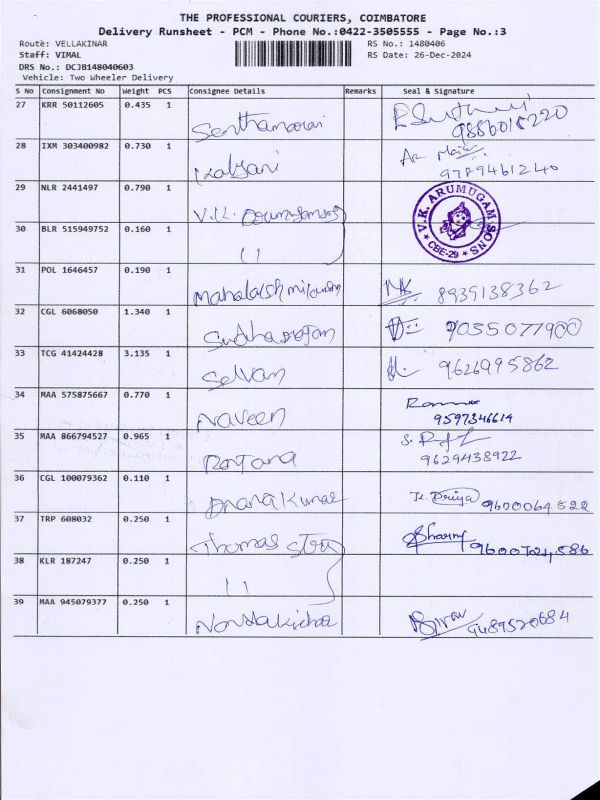 THE PROFESSIONAL COURIERS, COIMBATORE
Delivery Runsheet - PCM - Phone No.:0422-3505555 - Page No.:3
Route: VELLAKINAR RS No.: 1480406
Staff: VIMAL RS Date: 26-Dec-2024
DRS No.: DCJB148040603
Vehicle: Two Wheeler Delivery
S No Consignment No Weight PCS Consignee Details Remarks Seal & Signature
27 KRR 50112605 0.435 1
28 IXM 303400982 0.730 1 Kalyani 9789461240
29 NLR 2441497 0.790 1 V.K. V.K. ARUMUGAM SONS * CBE-29 *
30 BLR 515949752 0.160 1 11
31 POL 1646457 0.190 1 8939138362
32 CGL 6068050 1.340 1 9035077900
33 TCG 41424428 3.135 1 Selvam 9626995862
34 MAA 575875667 0.770 1 Naveen 9597346614
35 MAA 866794527 0.965 1 9629438922
36 CGL 100079362 0.110 1 Kumar Priya 9600064522
37 TRP 608032 0.250 1 Thomas
38 KLR 187247 0.250 1 11
39 MAA 945079377 0.250 1 9489520684